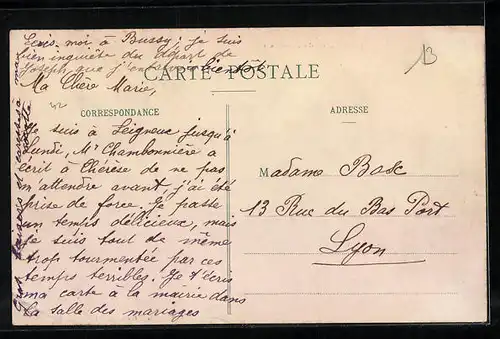 Ecris-moi à Bussy; je suis
bien inquiète du départ de
Joseph que j'
bientôt
CARTE POSTALE
Ma Chère Marie,
CORRESPONDANCE
Je suis à Leigneux jusqu'à
Lundi, Mr Chambonnière a
écrit à Thérèse de ne pas
m'attendre avant, j'ai été
prise de force. Je passe
un temps délicieux, mais
je suis tout de même
trop tourmentée par ces
temps terribles. Je t'écris
ma carte à la mairie dans
la salle des mariages
ADRESSE
Madame Basc
13 Rue du Bas Port
Lyon
13